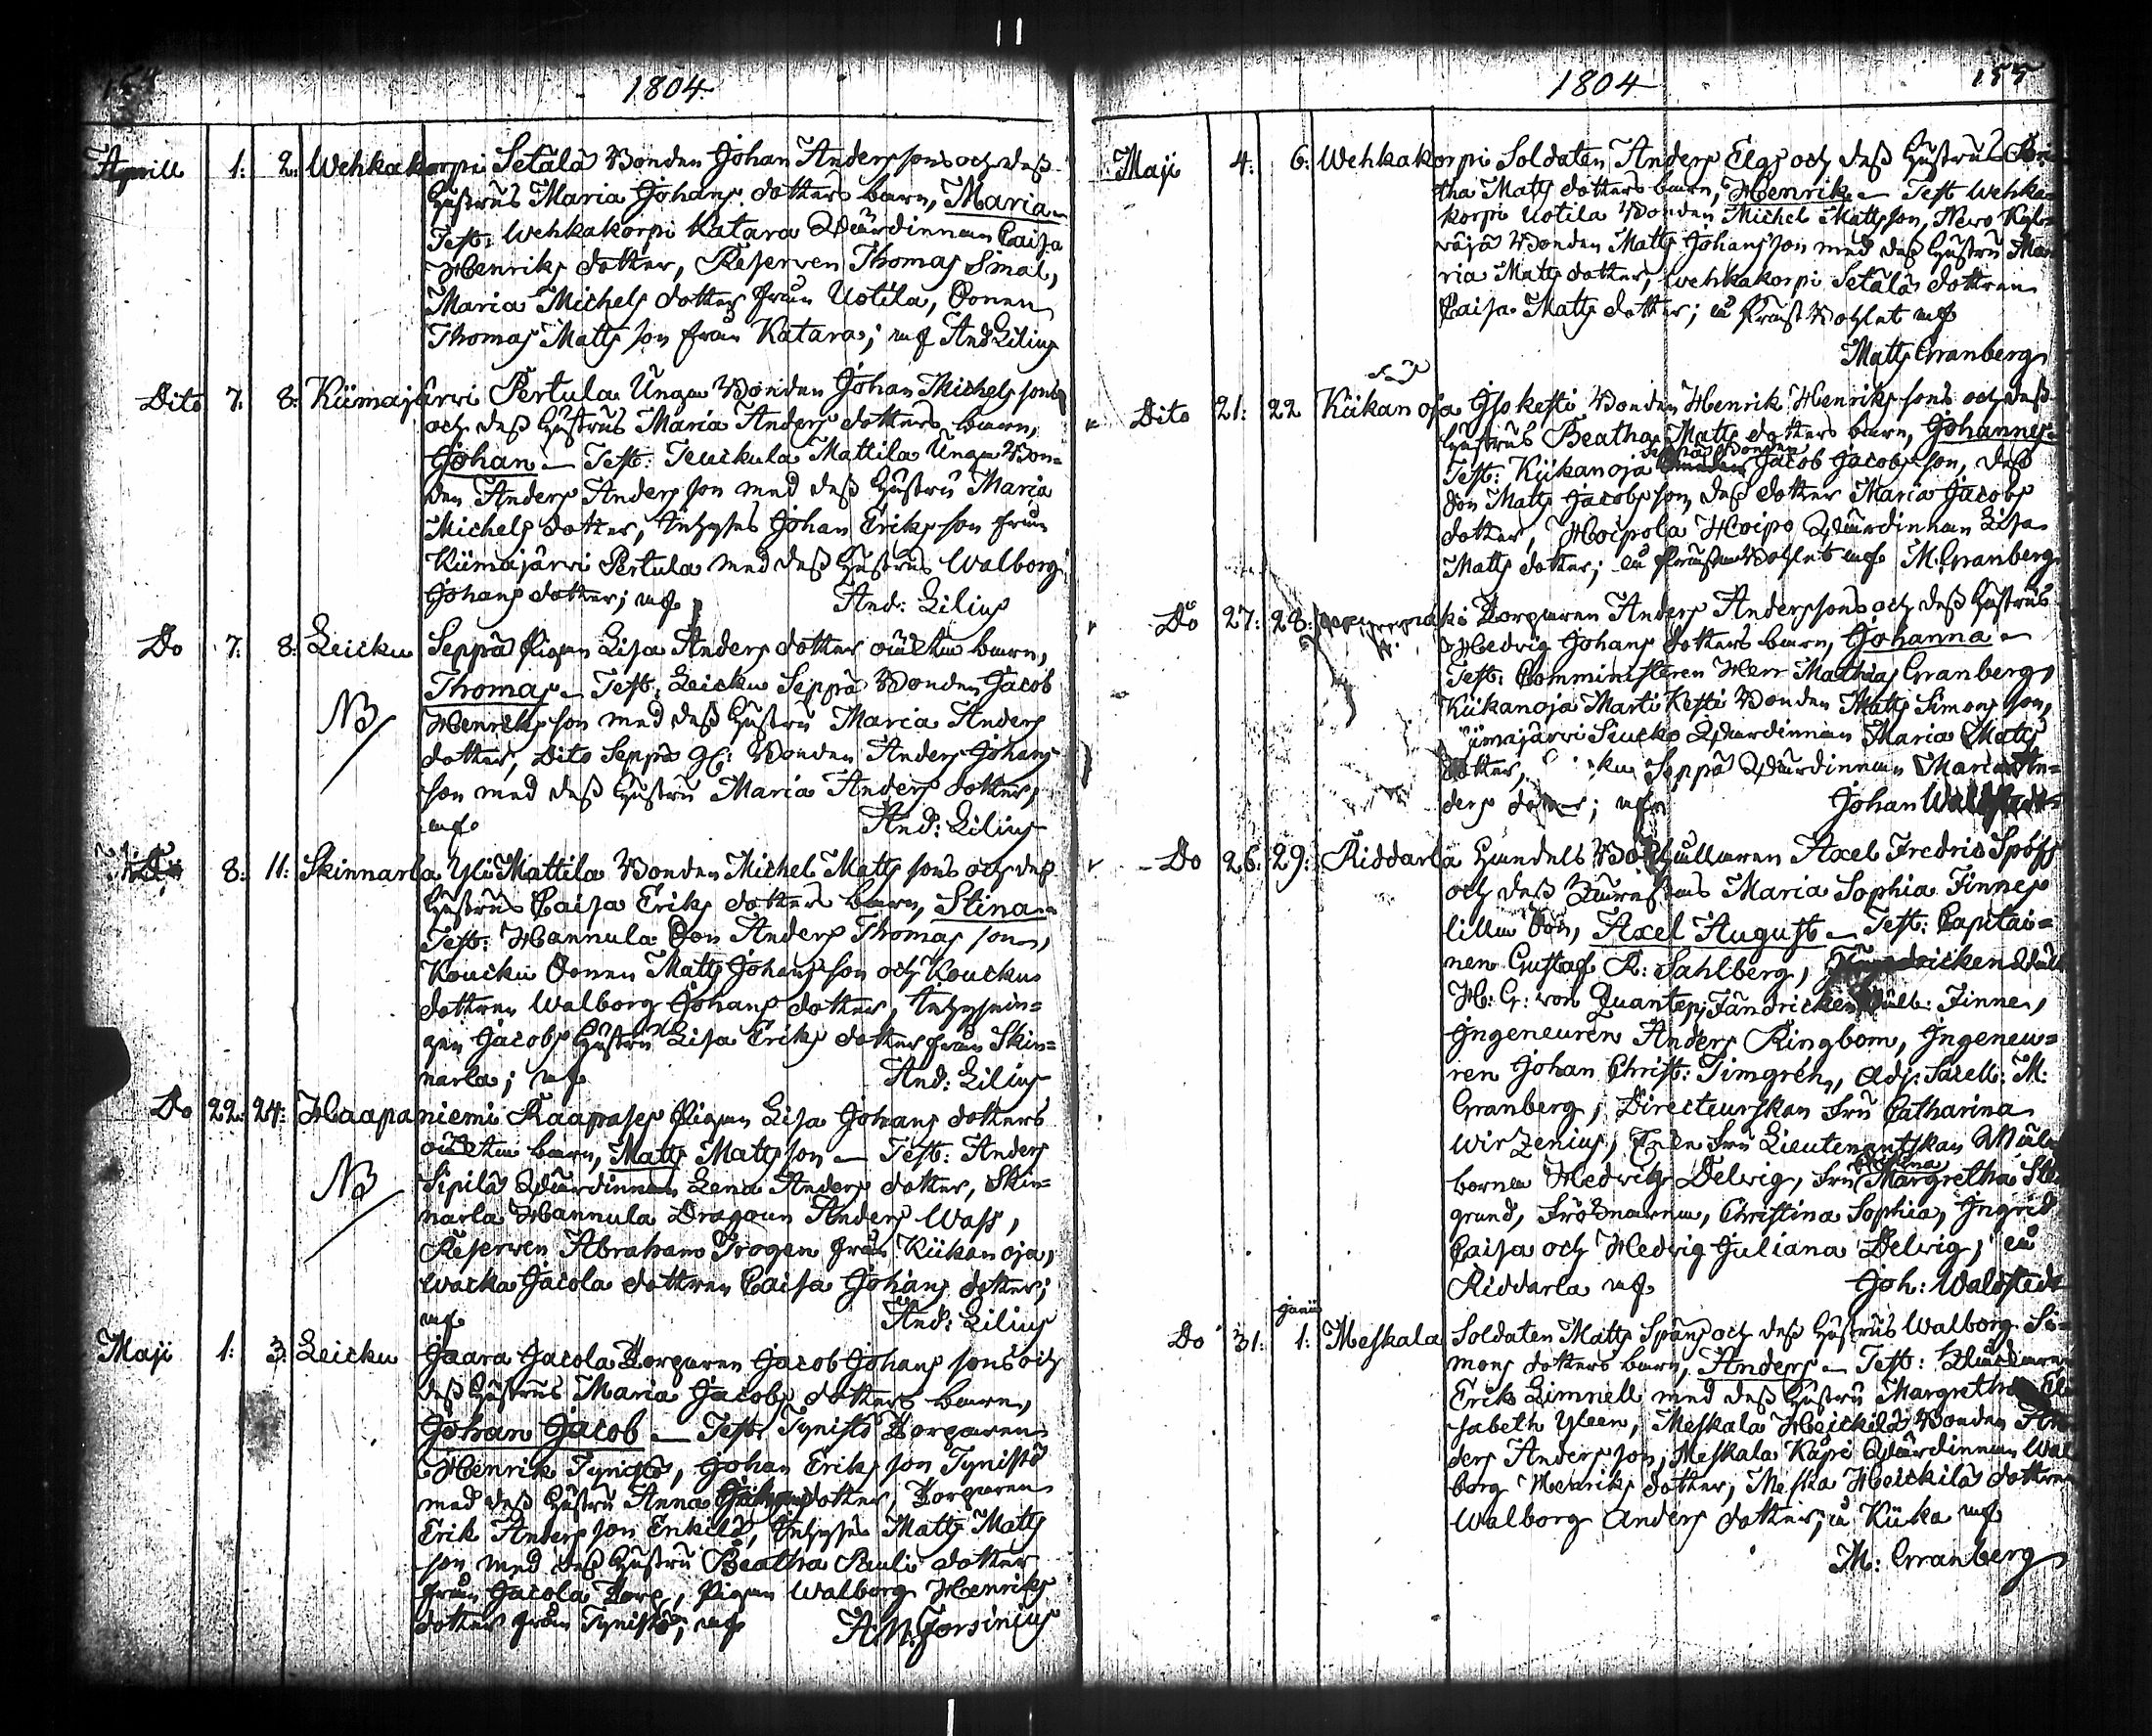 154
1804.
Aprill 1: 2. Wehkakorpi Setälä Bonden Johan Anderssons och dess
Hustrus Maria Johans dotters barn, Maria
Test: Wehkakorpi Katara Wärdinnan Caisa
Henriks dotter, Reserven Thomas Smal,
Maria Michels dotter från Uotila, Sonen
Thomas Matts son från Katara; mf And: Lilius
Dito 7. 8. Kiimajärvi Pertula Unga Bonden Johan Michels sons
och dess Hustrus Maria Anders dotters barn,
Johan — Test: Teuckula Mattila Unga Bon=
den Anders Anders son med dess Hustru Maria
Michels dotter, Inhyses Johan Eriks son från
Kiimajärvi Pertula med dess Hustru Walborg
Johans dotter; mf And: Lilius
Do 7. 8. Leicku Seppä Pigan Lisa Anders dotter oächta barn,
Thomas — Test: Leicku Seppä Bonden Jacob
NB Henriks son med dess Hustru Maria Anders
dotter, Dito Seppä gl: Bonden Anders Johans
son med dess Hustru Maria Anders dotter;
mf And: Lilius
Do 8: 11: Skinnarla Yli Mattila Bonden Michel Matts sons och dess
Hustrus Caisa Eriks dotters barn, Stina
Test: Hannula Son Anders Thomas son,
Koucku Sonen Matts Johans son och Koucku
dottren Walborg Johans dotter, Inhysnin=
gen Jacobs Hustru Lisa Eriks dotter från Skin=
narla; mf And: Lilius
Do 22: 24: Haapaniemi Raapases Pigan Lisa Johans dotters
oächta barn, Matts Matts son — Test: Anders
NB Sipilä Wärdinnan Lena Anders dotter, Skin=
narla Hannula Dragoun Anders Wass,
Reserven Abraham Trogen från Kiikanoja,
Wacka Jacola dottren Caisa Johans dotter;
mf And: Lilius
Maji 1: 3. Leicku Jaara Jacola Torparen Jacob Johans sons och
dess Hustrus Maria Jacobs dotters barn,
Johan Jacob — Test: Tynistö Torparen
Henrik Tynistö, Johan Eriks son Tynistö
med dess Hustru Anna dotter, Torparen
Erik Anders son Enkilä, Inhyses Matts Matts
son med dess Hustru Beatha Pauls dotter
från Jacola Torp, Pigan Walborg Henriks
dotter från Tynistö; mf A. N. Forsinius
1804
155
Maji 4: 6: Wehkakorpi Soldaten Anders Elgs och dess Hustrus Bea
tha Matts dotters barn, Henrik — Test Wehka=
korpi Uotila Bonden Michel Matts son, Nevo
Bonden Matts Johans son med dess Hustru Ma
ria Matts dotter, Wehkakorpi Setälä dottren
Caisa Matts dotter; å Präst Bohlet mf
Matts Granberg
Dito 21: 22 Kiikanoja Isokesti Bonden Henrik Henriks sons och dess
Hustrus Beatha Matts dotters barn, Johannes
Test: Kiikanoja Bonden Jacob Jacobs son, dess
Son Matts Jacobs son, dess dotter Maria Jacobs
dotter, Hoipola Hoipo Wärdinnan Lisa
Matts dotter; å Prästen Bohlet mf M: Granberg
Do 27: 28: Torparen Anders Anderssons och dess Hustrus
Hedvig Johans dotters barn, Johanna —
Test: Comministeren Herr Mathias Granberg,
Kiikanoja Marti Kesti Bonden Matts Simons son,
iimajärvi Siucko Wärdinnan Maria Matts
dotter, Seppä Wärdinnan Maria An=
ders dotter; mf Johan
Do 26: 29: Riddarla Handels Bokhållaren Axel Fredric Spöff
och dess Maria Sophia Finnes
lilla Son, Axel August — Test: Capitai=
nen Gustaf R: Sahlberg,
H: G: von Quanten, Fändricken Finne,
Ingeneuren Anders Ringbom, Ingeneu=
ren Johan Christ: Timgren, Adj: Sacell: M:
Granberg, Directeurskan Fru Catharina
Wirzenius, Enke Fru Lieutenantskan Wäl
borna Hedvig Delvig, Fru Margretha Ste
grund, Fröknarna, Christina Sophia, Ingrid
Caisa och Hedvig Juliana Delvig; å
Riddarla mf Joh: Waldstedt
Junii
Do 31: 1: Meskala Soldaten Matts Späns och dess Hustrus Walborg Si=
mons dotters barn, Anders — Test:
Erik Limnell med dess Hustru Margretha El
sabeth Yleen, Meskala Heickilä Bonden An
ders Anders son, Meskala Käpi Wärdinnan Wal
borg Henriks dotter, Meska Heickilä dottren
Walborg Anders dotter; å Kiika mf
M: Granberg